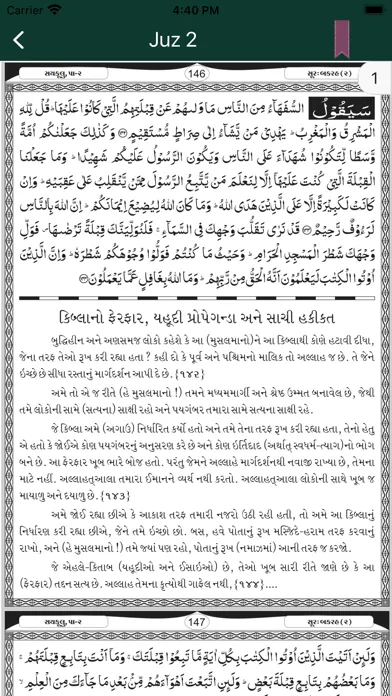 Carrier
4:40 PM
Juz 2
1
સયકૂલુ, પા-૨
146
સૂરઃ બકરહ (૨)
سَيَقُوْلُ السُّفَهَآءُ مِنَ النَّاسِ مَا وَلّٰىهُمْ عَنْ قِبْلَتِهِمُ الَّتِيْ كَانُوْا عَلَيْهَا ؕ قُلْ لِّلّٰهِ
الْمَشْرِقُ وَالْمَغْرِبُ ؕ يَهْدِيْ مَنْ يَّشَآءُ اِلٰى صِرَاطٍ مُّسْتَقِيْمٍ ﴿۱۴۲﴾ وَكَذٰلِكَ جَعَلْنٰكُمْ اُمَّةً
وَّسَطًا لِّتَكُوْنُوْا شُهَدَآءَ عَلَى النَّاسِ وَيَكُوْنَ الرَّسُوْلُ عَلَيْكُمْ شَهِيْدًا ؕ وَمَا جَعَلْنَا
الْقِبْلَةَ الَّتِيْ كُنْتَ عَلَيْهَآ اِلَّا لِنَعْلَمَ مَنْ يَّتَّبِعُ الرَّسُوْلَ مِمَّنْ يَّنْقَلِبُ عَلٰى عَقِبَيْهِ ؕ وَاِنْ
كَانَتْ لَكَبِيْرَةً اِلَّا عَلَى الَّذِيْنَ هَدَى اللّٰهُ ؕ وَمَا كَانَ اللّٰهُ لِيُضِيْعَ اِيْمَانَكُمْ ؕ اِنَّ اللّٰهَ بِالنَّاسِ
لَرَءُوْفٌ رَّحِيْمٌ ﴿۱۴۳﴾ قَدْ نَرٰى تَقَلُّبَ وَجْهِكَ فِي السَّمَآءِ ۚ فَلَنُوَلِّيَنَّكَ قِبْلَةً تَرْضٰىهَا ۪ فَوَلِّ
وَجْهَكَ شَطْرَ الْمَسْجِدِ الْحَرَامِ ؕ وَحَيْثُ مَا كُنْتُمْ فَوَلُّوْا وُجُوْهَكُمْ شَطْرَهٗ ؕ وَاِنَّ الَّذِيْنَ
اُوْتُوا الْكِتٰبَ لَيَعْلَمُوْنَ اَنَّهُ الْحَقُّ مِنْ رَّبِّهِمْ ؕ وَمَا اللّٰهُ بِغَافِلٍ عَمَّا يَعْمَلُوْنَ ﴿۱۴۴﴾
કિબ્લાનો ફેરફાર, યહૂદી પ્રોપેગન્ડા અને સાચી હકીકત
બુદ્ધિહીન અને અણસમજ લોકો કહેશે કે આ (મુસલમાનો)ને આ કિબ્લાથી કોણે હટાવી દીધા,
જેના તરફ તેઓ રૂખ કરી રહ્યા હતા ? કહી દો કે પૂર્વ અને પશ્ચિમનો માલિક તો અલ્લાહ જ છે. તે જેને
ઇચ્છે છે સીધા રસ્તાનું માર્ગદર્શન આપી દે છે. {૧૪૨}
અમે તો એ જ રીતે (હે મુસલમાનો !) તમને મધ્યમમાર્ગી અને શ્રેષ્ઠ ઉમ્મત બનાવેલ છે, જેથી
તમે લોકોની સામે (સત્યના) સાક્ષી રહો અને પયગંબર તમારા સામે સત્યના સાક્ષી રહે.
જે કિબ્લા અમે (અગાઉ) નિર્ધારિત કર્યો હતો અને તમે તેના તરફ રૂખ કરી રહ્યા હતા, તેનો હેતુ
એ હતો કે જોઈએ કોણ પયગંબરનું અનુસરણ કરે છે અને કોણ ઈર્તિદાદ (અર્થાત્ સ્વધર્મ-ત્યાગ)નો ભોગ
બને છે. આ ફેરફાર ખૂબ ભારે બોજ હતો. પરંતુ જેમને અલ્લાહે માર્ગદર્શનથી નવાજી રાખ્યા છે, તેમના
માટે નહીં. અલ્લાહતઆલા તમારા ઈમાનને વ્યર્થ નથી કરતો. અલ્લાહતઆલા લોકોની સાથે ખૂબ જ
માયાળુ અને દયાળુ છે. {૧૪૩}
અમે જોઈ રહ્યા છીએ કે આકાશ તરફ તમારી નજરો ઉઠી રહી હતી, તો અમે આ કિબ્લાનું
નિર્ધારણ કરી રહ્યા છીએ, જેને તમે ઇચ્છો છો. બસ, હવે પોતાનું રૂખ મસ્જિદે-હરામ તરફ કરવાનું
રાખો, અને (હે મુસલમાનો !) તમે જ્યાં પણ રહો, પોતાનું રૂખ (નમાઝમાં) આની તરફ જ કરજો.
જે એહલે-કિતાબ (યહૂદીઓ અને ઈસાઈઓ) છે, તેઓ ખૂબ સારી રીતે જાણે છે કે આ
(ફેરફાર) તદ્દન સત્ય છે. અલ્લાહ તેમના કૃત્યોથી ગાફેલ નથી, {૧૪૪}....
સયકૂલુ, પા-૨
147
સૂરઃ બકરહ (૨)
وَلَئِنْ اَتَيْتَ الَّذِيْنَ اُوْتُوا الْكِتٰبَ بِكُلِّ اٰيَةٍ مَّا تَبِعُوْا قِبْلَتَكَ ۚ وَمَآ اَنْتَ بِتَابِعٍ قِبْلَتَهُمْ ۚ
وَمَا بَعْضُهُمْ بِتَابِعٍ قِبْلَةَ بَعْضٍ ؕ وَلَئِنِ اتَّبَعْتَ اَهْوَآءَهُمْ مِّنْۢ بَعْدِ مَا جَآءَكَ مِنَ